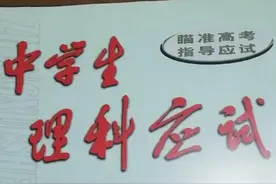 瞄准高考
指导应试
中学生
理科应试